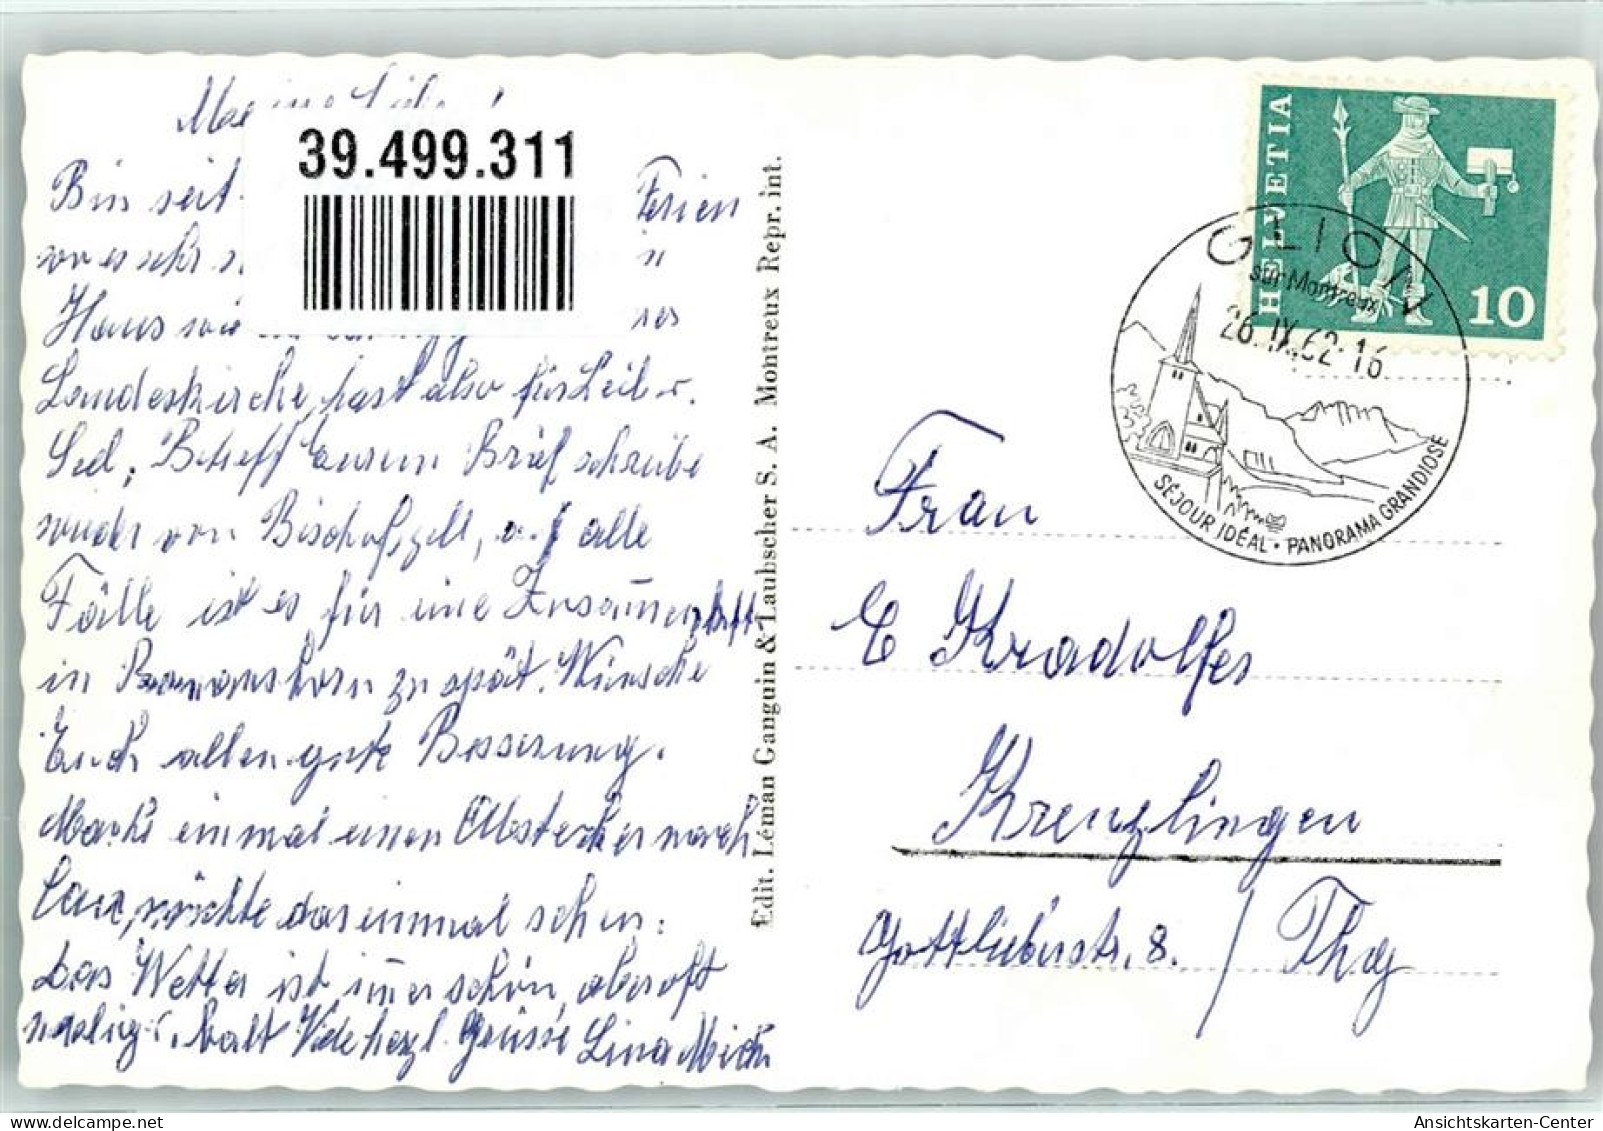 39.499.311
Bin seit Ferien
wo es sehr
Haus wie
Landeskirche, hast also für Leib u.
Betreff Eurem Brief schreibe
wieder von Bischofszell, auf alle
Fälle ist es für eine Zusammenkunft
in Romanshorn zu spät. Wünsche
Euch allen gute Besserung.
einmal einen Abstecher nach
möchte das einmal sehen.
Das Wetter ist immer schön, aber oft
neblig u. kalt Viele herzl. Grüsse Lina
Edit. Léman Ganguin & Laubscher S. A. Montreux Repr. int.
HELVETIA
10
GLION
sur Montreux
26.IX.62-16
SÉJOUR IDÉAL • PANORAMA GRANDIOSE
Frau
E Kradolfer
Kreuzlingen
Gottlieberstr. 8. / Thg
Ansichtskarten-Center